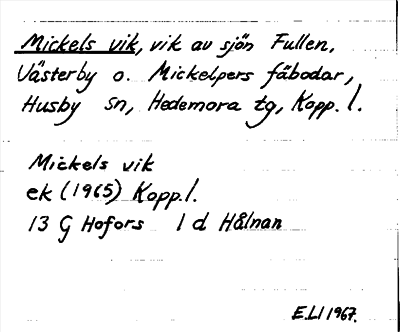 Mickels vik, vik av sjön Fullen,
Västerby o. Mickelpers fäbodar,
Husby sn, Hedemora tg, Kopp. l.
Mickels vik
ek (1965) Kopp. l.
13 G Hofors 1 d Hålnan
E.Ll 1967.